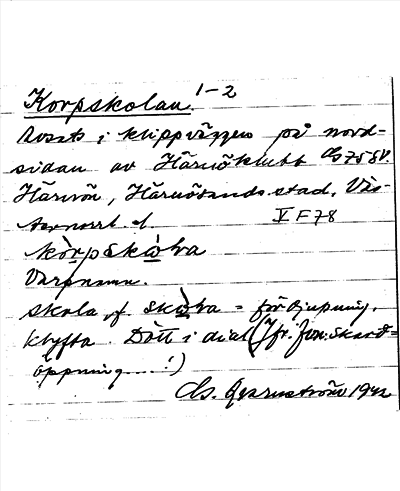 Korpskolan. 1-2
i klippväggen på nord-
sidan av Härnöklubb 758V.
Härnön, Härnösands stad, Väs-
ternorrl. l.
V F78
kòrpskòla
skola, f. skòla = fördjupning,
klyfta. Dött i dial (Jfr. fvn. skard =
öppning....!)
1942